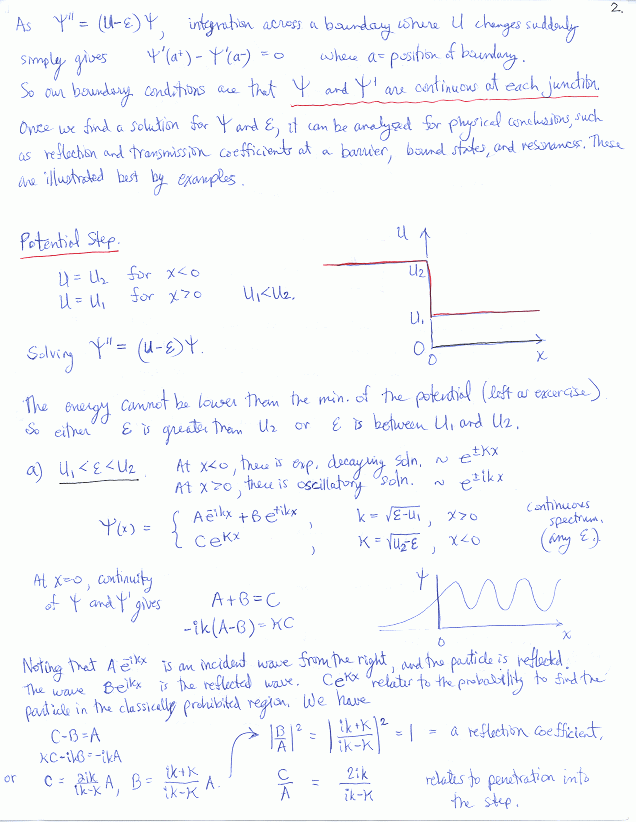 2.
As Ψ'' = (U-ε)Ψ, integration across a boundary where U changes suddenly
simply gives Ψ'(a⁺) - Ψ'(a-) = 0 where a = position of boundary.
So our boundary conditions are that Ψ and Ψ' are continuous at each junction.
Once we find a solution for Ψ and ε, it can be analyzed for physical conclusions, such
as reflection and transmission coefficients at a barrier, bound states, and resonances. These
are illustrated best by examples.
Potential Step.
U = U₂ for x<0
U = U₁ for x>0 U₁<U₂.
U
U₂
U₁
0
0 x
Solving Ψ'' = (U-ε)Ψ.
The energy cannot be lower than the min. of the potential (left as excercise)
So either ε is greater than U₂ or ε is between U₁ and U₂.
a) U₁<ε<U₂ At x<0, there is exp. decaying soln. ~ e^{±Kx}
At x>0, there is oscillatory soln. ~ e^{±ikx}
Ψ(x) = { Ae^{-ikx} + Be^{+ikx} , k = √(ε-U₁) , x>0
Ce^{Kx} , K = √(U₂-ε) , x<0
continuous
spectrum.
(any ε.)
At x=0, continuity
of Ψ and Ψ' gives A+B=C
-ik(A-B) = KC
Ψ
0 x
Noting that Ae^{-ikx} is an incident wave from the right, and the particle is reflected.
The wave Be^{ikx} is the reflected wave. Ce^{Kx} relates to the probability to find the
particle in the classically prohibited region. We have
C-B=A
KC-ikB=-ikA
or C = 2ik/(ik-K) A, B = (ik+K)/(ik-K) A.
|B/A|² = |(ik+K)/(ik-K)|² = 1 = a reflection coefficient,
C/A = 2ik/(ik-K) relates to penetration into
the step.